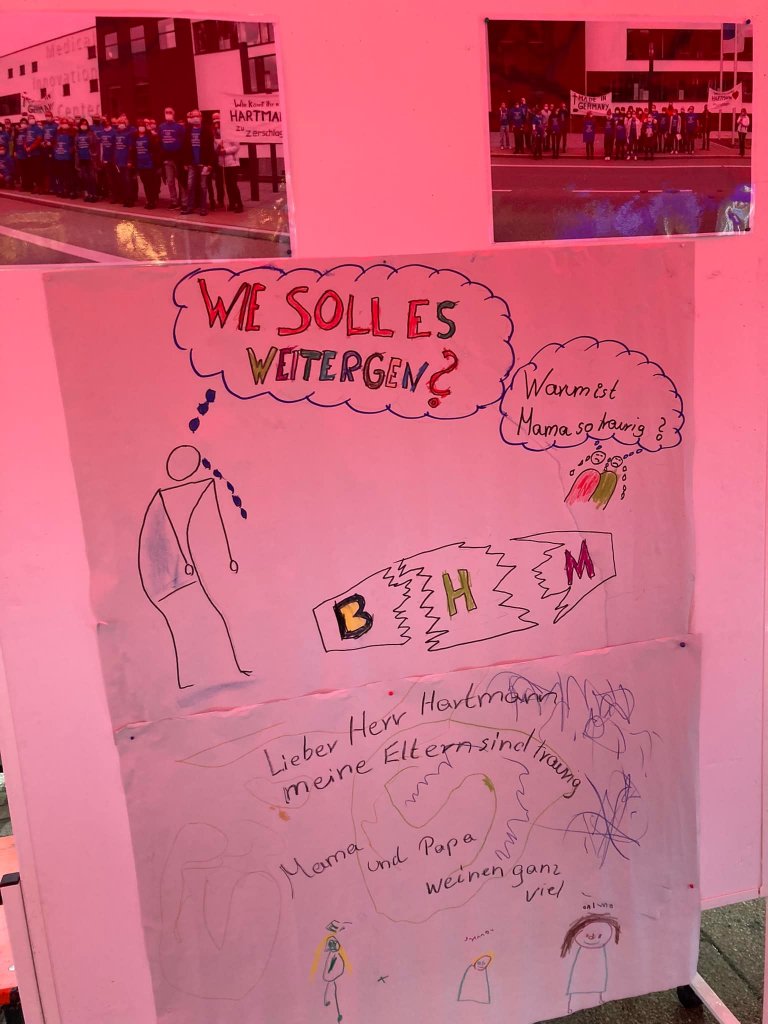 Medical
Innovation
Center
GERMANY
HARTMAN
zu zerschlag
MADE IN
GERMANY
HARTMANN
WIE SOLL ES
WEITERGEN?
Warum ist
Mama so traurig?
B H M
Lieber Herr Hartmann
meine Eltern sind traurig
Mama und Papa
weinen ganz
viel